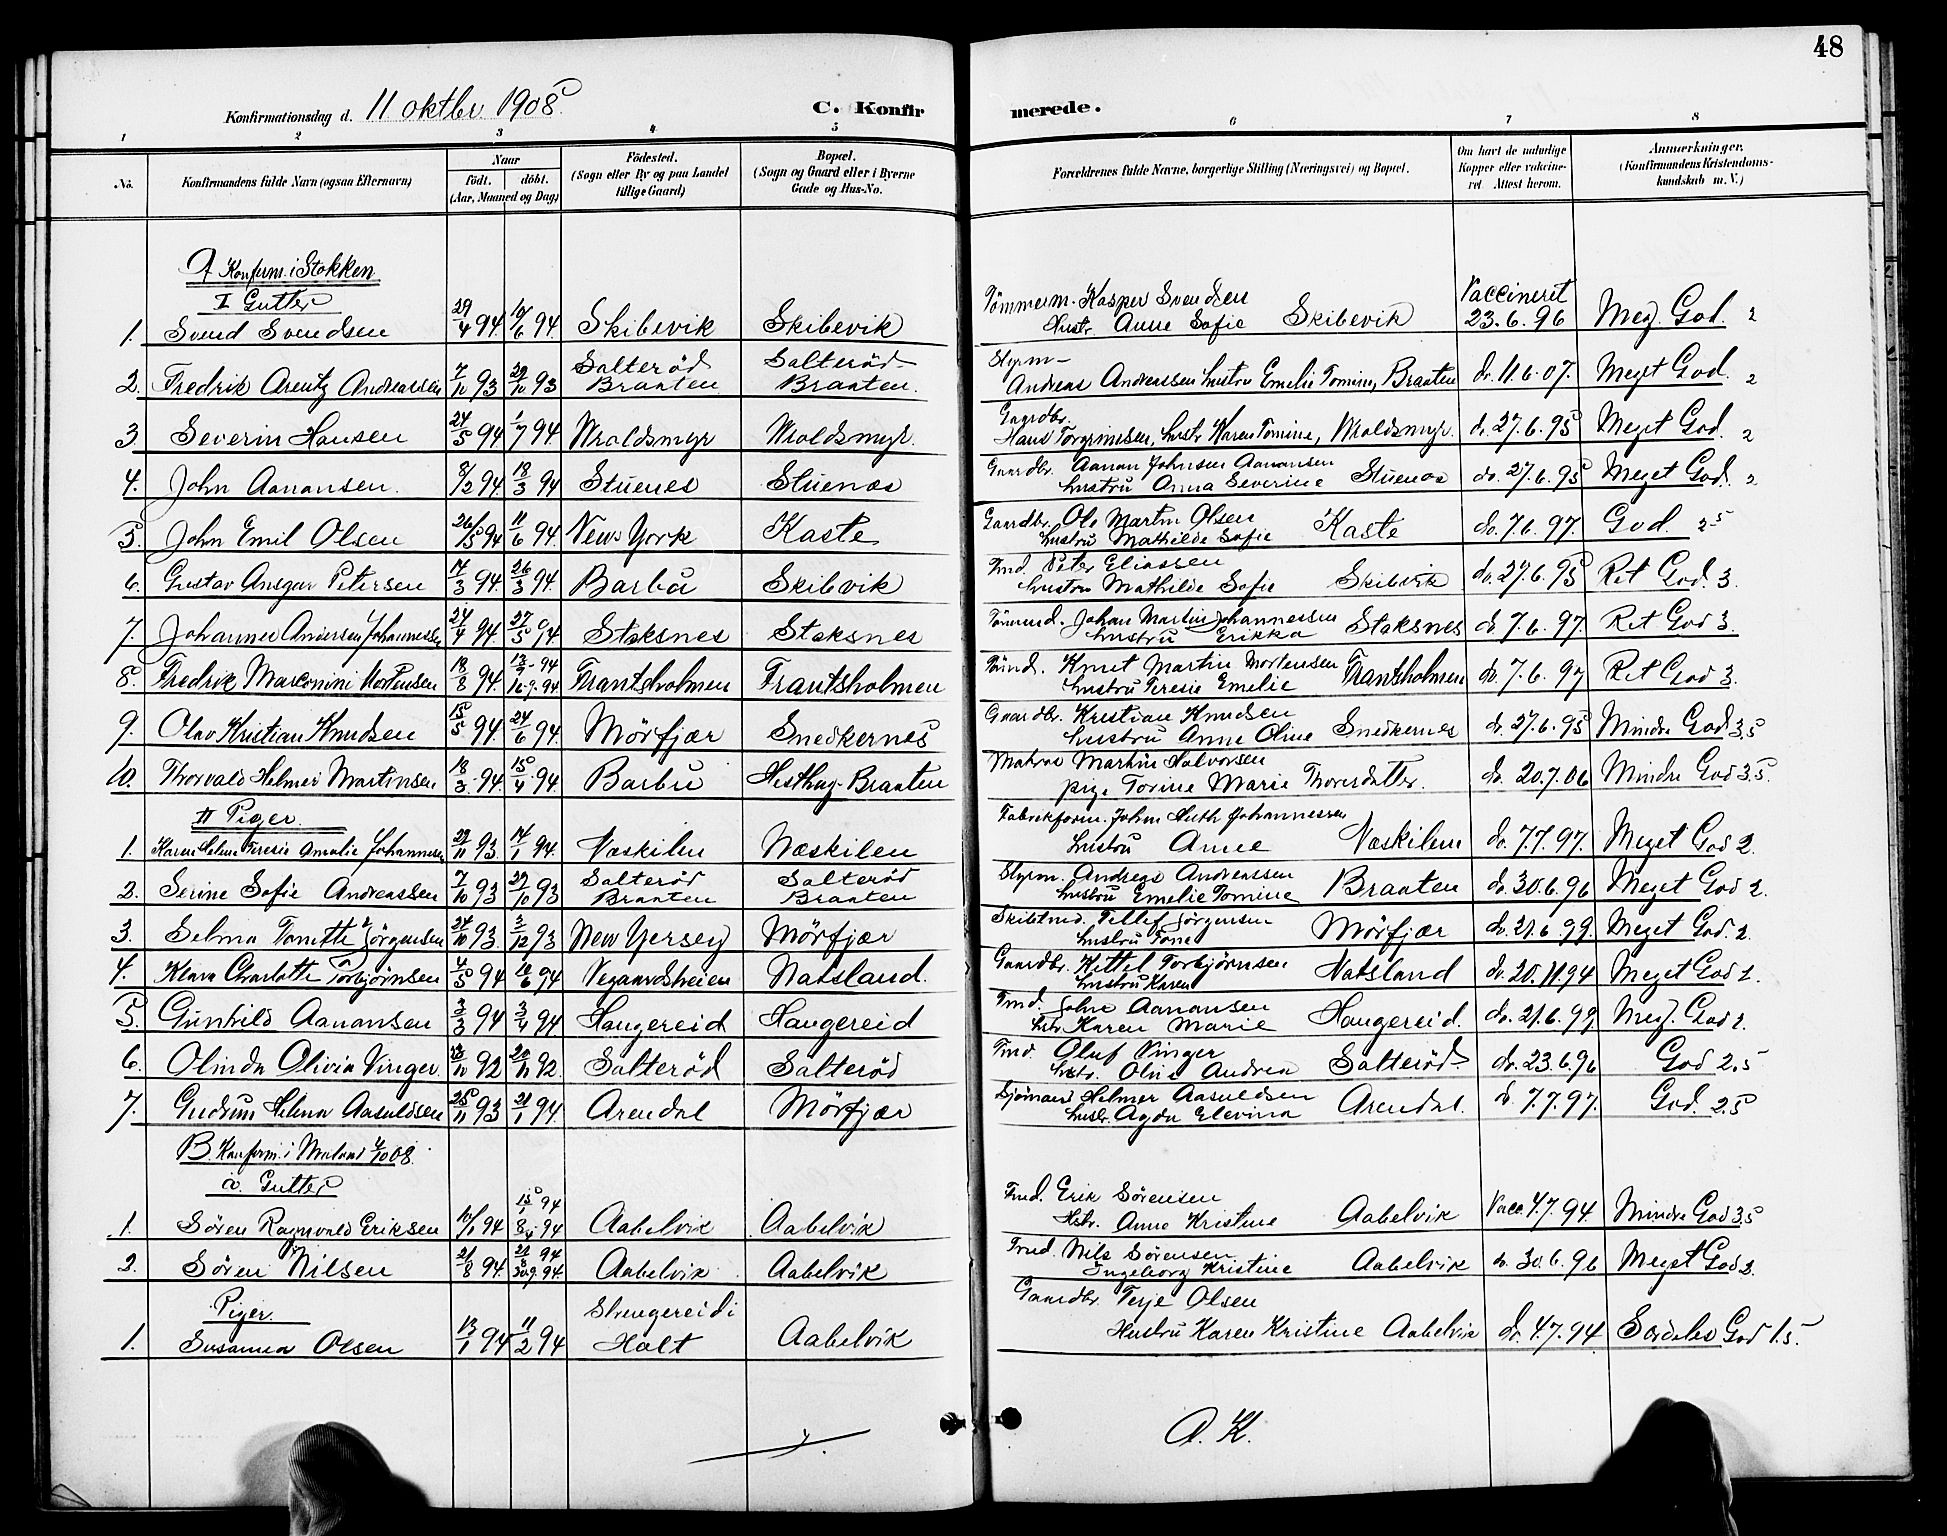 48
Konfirmationsdag d. 11 oktbr. 1908. C. Konfirmerede.
1 2 3 4 5 6 7 8
No. Konfirmandens fulde Navn (ogsaa Efternavn) Naar født. døbt. (Aar, Maaned og Dag) Fødested. (Sogn eller By og paa Landet tillige Gaard) Bopæl. (Sogn og Gaard eller i Byerne Gade og Hus-No. Forældrenes fulde Navne, borgerlige Stilling (Næringsvei) og Bopæl. Om havt de naturlige Kopper eller vaccineret. Attest herom. Anmærkninger. (Konfirmandens Kristendomskundskab m. V.)
A Konfirm. i Stokken
I Gutter
1. Svend Svendsen 29/4 94 17/6 94. Skibevik Skibevik Tømmerm. Kasper Svendsen Hustr. Anne Sofie Skibevik Vaccineret 23.6.96 Meg. God. 2
2. Fredrik Arentz Andreassen 7/10 93 29/10 93 Salterød Braaten Salterød Braaten. Styrm Andreas Andreassen hustru Emelie Tomine, Braaten do. 11.6.07. Meget God. 2
3 Severin Hansen 24/5 94 1/7 94 Moldsmyr Moldsmyr. Gaardbr. Hans Torgrimsen, hustr. Karen Tomine, Moldsmyr. do. 27.6.95 Meget God. 2
4. John Aanansen. 8/2 94. 18/3 94 Stuenes Stuenæs Gaardbr. Aanan Johnsen Aanansen hustru Anna Severine Stuenæs do. 27.6.95 Meget God. 2
5. John Emil Olsen 26/5 94 11/6 94. New York Kaste Gaardbr. Ole Martin Olsen hustru Mathilde Sofie Kaste do. 7.6.97. God. 2.5
6. Gustav Ansgar Petersen 14/3 94. 26/3 94. Barbu Skibvik Tmd. Peter Eliassen hustru Mathilde Sofie Skibvik do. 27.6.95 Ret God. 3.
7. Johannes Andersen Johannessen 24/4 94. 27/5 94. Staksnes Staksnes Tømmd. Johan Martin Johannessen hustru Erikka Staksnes do. 7.6.97. Ret God 3.
8. Fredrik Marconini Mortensen 18/8 94. 16.9.94. Frantsholmen Frantsholmen Tømd. Knut Martin Mortensen hustru Teresie Emelie Frantsholmen do. 7.6.97 Ret God 3.
9. Olav Kristian Knudsen 15/5 94. 24/6 94. Mørfjær Snedkernes Gaardbr. Kristian Knudsen hustru Anne Oline Snedkernes do. 27.6.95 Mindre God 3.5
10. Thorvald Helmer Martinsen 18/3 94. 15/4 94. Barbu Hesthag-Braaten Matros Martin Halvorsen pige Torine Marie Thorsdatter. do. 20.7.06 Mindre God 3.5.
II Piger.
1. Karen Helene Teresie Amalie Johannessen 22/11 93. 14/1 94. Næskilen Næskilen Fabrikform. John Huth Johannessen hustru Anne Næskilen do. 7.7.97. Meget God 2.
2. Serine Sofie Andreassen 7/10 93 29/10 93 Salterød Braaten Salterød Braaten Styrm. Andreas Andreassen hustru Emelie Tomine Braaten do. 30.6.96 Meget God 2.
3. Selma Tomette Jørgensen 24/10 93. 3/12 93 New Yersey Mørfjær Skibtmd. Tellef Jørgensen hustru Tone Mørfjær do. 21.6.99. Meget God. 2.
4. Klara Charlotte Torbjørnsen 4/5 94 16/6 94 Vegaardsheien Natsland. Gaardbr. Kittel Torbjørnsen hustru Karen Natsland do. 20.11.94 Meget God 2.
5. Gunhild Aanansen 3/3 94 3/4 94 Haugereid Haugereid Tmd. John Aanansen hstr. Karen Marie Haugereid. do. 21.6.99. Meg. God 2.
6. Olinda Olivia Vinger 13/10 92 20/11 92. Salterød Salterød Tmd. Oluf Vinger hstr. Oline Andrea Salterød do. 23.6.96 God 2.5
7. Gudrun Helma Aasuldsen 25/11 93 21/1 94. Arendal Mørfjær Sjømand Helmer Aasuldsen hustr. Agda Elevina Arendal. do. 7.7.97. God. 2.5
B. Konfirm. i 4/10 08.
a. Gutter
1. Søren Ragnvald Eriksen 10/1 94 15/1 94 8/4 94 Aabelvik Aabelvik Tmd. Erik Sørensen Hstr. Anne Kristine Aabelvik Vacc. 4.7.94. Mindre God 3.5
2. Søren Nilsen 21/8 94. 21/8 94 30.9.94. Aabelvik Aabelvik Tmd. Nils Sørensen Ingeborg Kristine Aabelvik do. 30.6.96 Meget God 2.
Piger.
1. Susanna Olsen 13/1 94 11/2 94 Strengereid i Holt Aabelvik Gaardbr. Terje Olsen Hustru Karen Kristine Aabelvik do. 4.7.94 Særdeles God 1.5.
A. K.